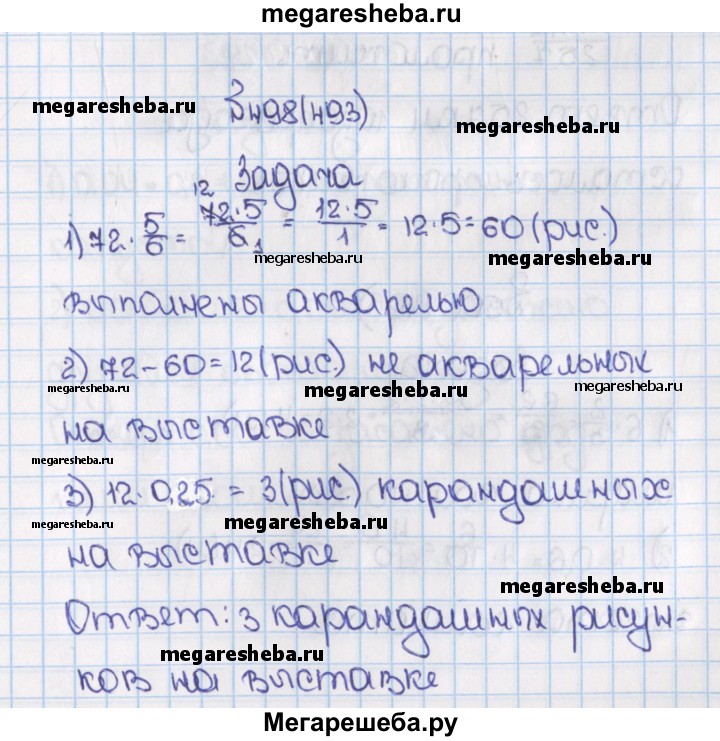 megaresheba.ru
megaresheba.ru
№498(493)
megaresheba.ru
Задача
1) 72 · 5/6 = 72·5/6 = 12·5/1 = 12·5 = 60 (рис.)
12
1
megaresheba.ru
megaresheba.ru
выполнены акварелью
2) 72 – 60 = 12 (рис.) не акварельных
megaresheba.ru
megaresheba.ru
megaresheba.ru
на выставке
megaresheba.ru
3) 12 · 0,25 = 3 (рис.) карандашных
megaresheba.ru
megaresheba.ru
на выставке
megaresheba.ru
Ответ: 3 карандашных рисун-
megaresheba.ru
ков на выставке
Мегарешеба.ру